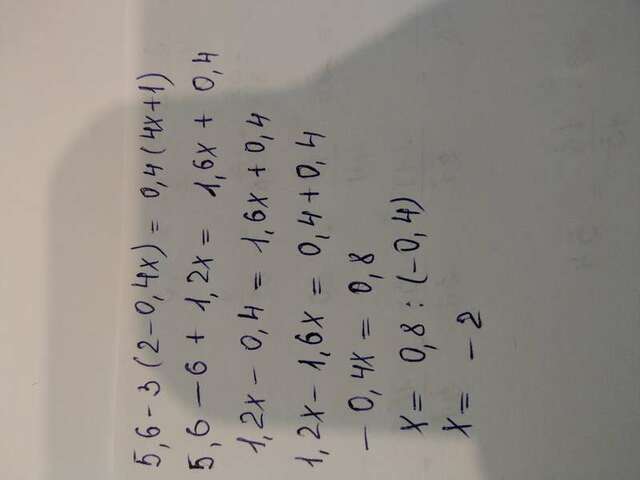 5,6-3(2-0,4x) = 0,4(4x+1)
5,6-6+1,2x = 1,6x + 0,4
1,2x-0,4 = 1,6x+0,4
1,2x-1,6x = 0,4+0,4
-0,4x = 0,8
x = 0,8 : (-0,4)
x = -2